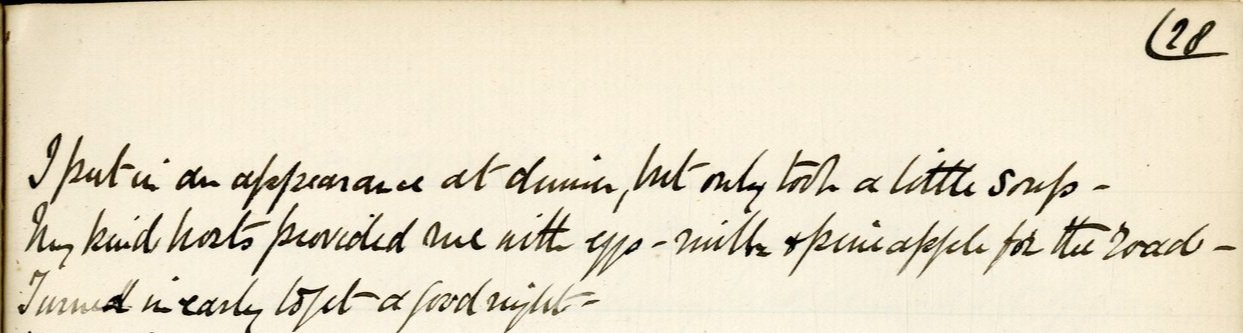 (28
I put in an appearance at dinner, but only took a little soup -
My kind hosts provided me with eggs - milk & pineapple for the road -
Turned in early to get a good night -